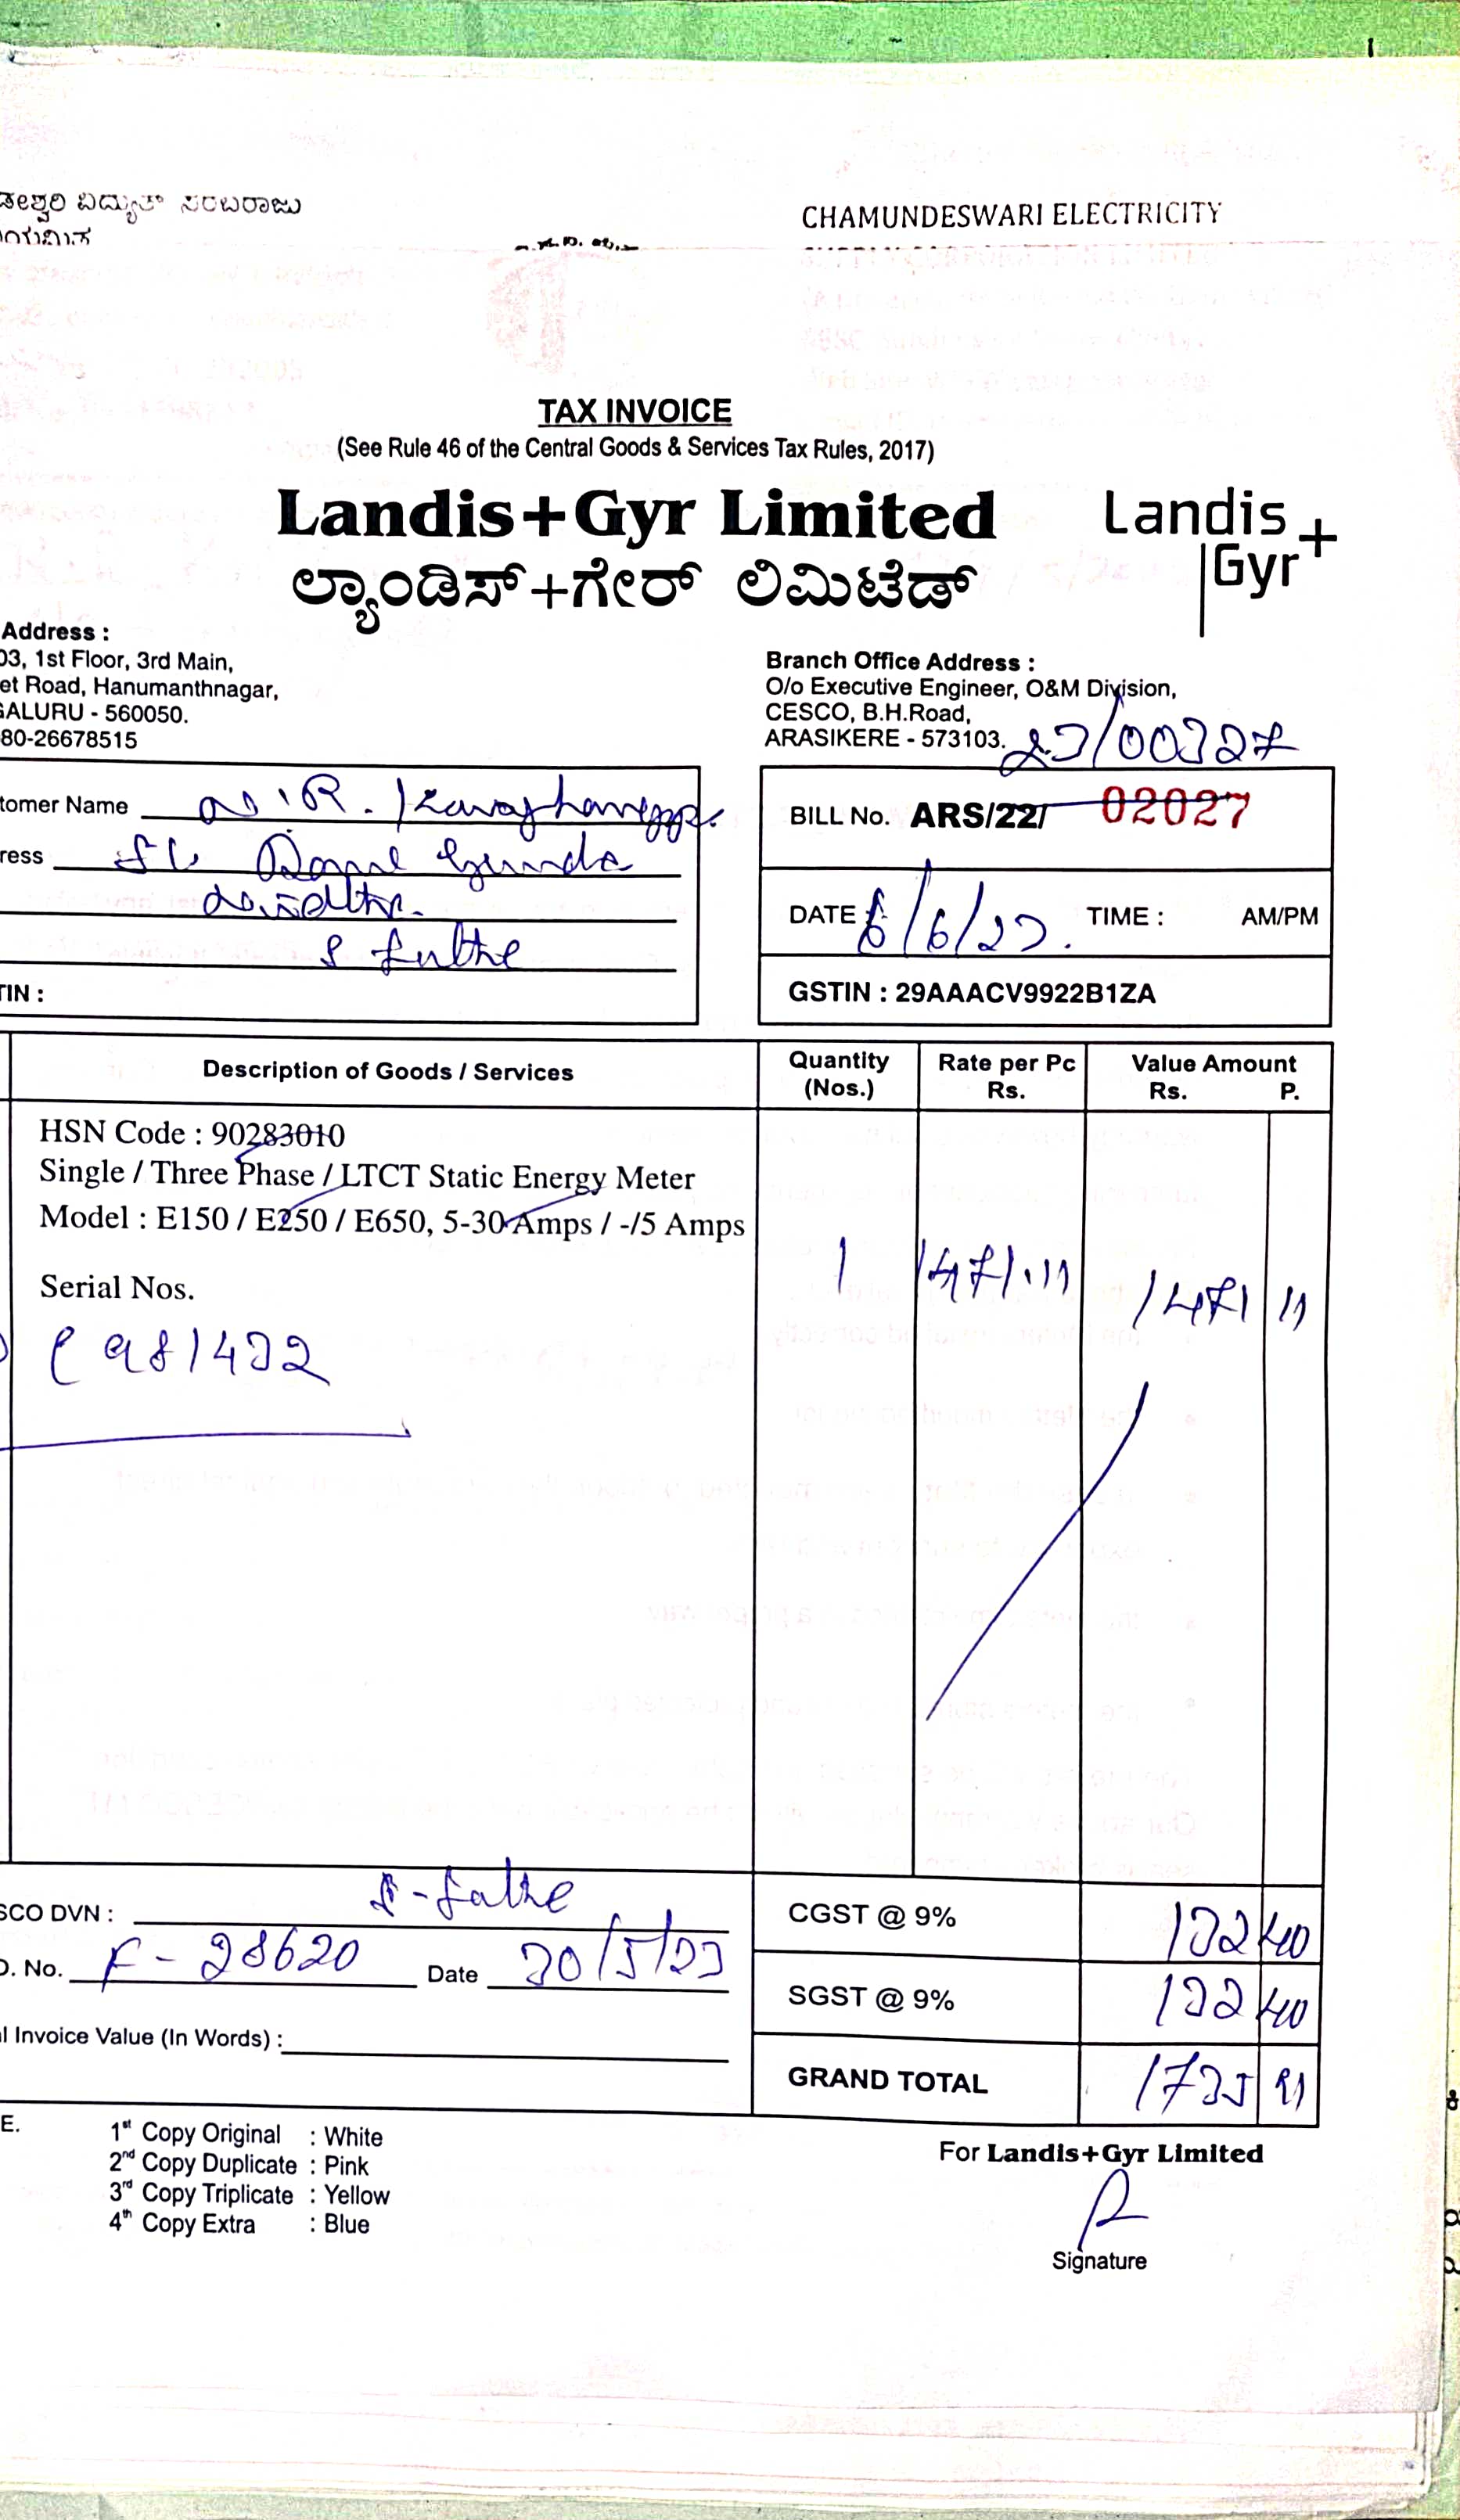 ಡೇಶ್ವರಿ ವಿದ್ಯುತ್ ಸರಬರಾಜು
CHAMUNDESWARI ELECTRICITY
TAX INVOICE
(See Rule 46 of the Central Goods & Services Tax Rules, 2017)
Landis+Gyr Limited
Landis+Gyr+
ಲ್ಯಾಂಡಿಸ್+ಗೇರ್ ಲಿಮಿಟೆಡ್
Address :
03, 1st Floor, 3rd Main,
et Road, Hanumanthnagar,
GALURU - 560050.
80-26678515
Branch Office Address :
O/o Executive Engineer, O&M Division,
CESCO, B.H.Road,
ARASIKERE - 573103.
23/00327
tomer Name
ress
TIN :
BILL No. ARS/22/ 02027
DATE 6/6/23. TIME : AM/PM
GSTIN : 29AAACV9922B1ZA
Description of Goods / Services
Quantity (Nos.)
Rate per Pc Rs.
Value Amount Rs. P.
HSN Code : 90283010
Single / Three Phase / LTCT Static Energy Meter
Model : E150 / E250 / E650, 5-30 Amps / -/5 Amps
1 1471.11 1471 11
Serial Nos.
981432
SCO DVN :
O. No. F - 28620 Date 30/5/23
l Invoice Value (In Words) :
CGST @ 9% 132 40
SGST @ 9% 132 40
GRAND TOTAL 1735 91
E.
1st Copy Original : White
2nd Copy Duplicate : Pink
3rd Copy Triplicate : Yellow
4th Copy Extra : Blue
For Landis+Gyr Limited
Signature